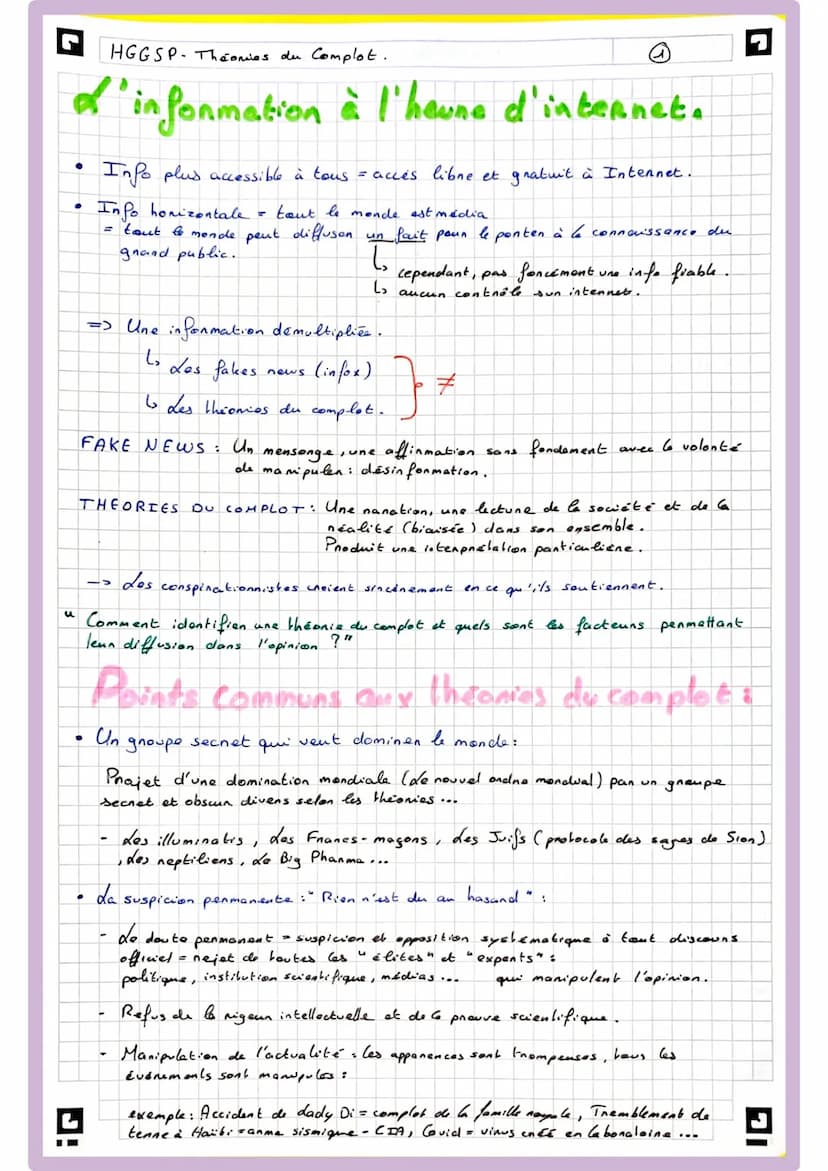 HGGSP - Théories du Complot.
1
L'information à l'heure d'internet.
• Info plus accessible à tous = accès libre et gratuit à Internet.
• Info horizontale = tout le monde est média
= tout le monde peut diffuser un fait pour le porter à la connaissance du
grand public.
↳ cependant, pas forcément une info fiable.
↳ aucun contrôle sur internet.
=> Une information démultipliée.
↳ Les fakes news (infox)
↳ Les théories du complot.
} ≠
FAKE NEWS : Un mensonge, une affirmation sans fondement avec la volonté
de manipuler : désinformation.
THÉORIES DU COMPLOT : Une narration, une lecture de la société et de la
réalité (biaisée) dans son ensemble.
Produit une interprétation particulière.
-> Les conspirationnistes croient sincèrement en ce qu'ils soutiennent.
" Comment identifier une théorie du complot et quels sont les facteurs permettant
leur diffusion dans l'opinion ?"
Points communs aux théories du complot :
• Un groupe secret qui veut dominer le monde :
Projet d'une domination mondiale (le nouvel ordre mondial) par un groupe
secret et obscur divers selon les théories ...
- Les illuminatis, les Francs-maçons, les Juifs (protocole des sages de Sion)
, les reptiliens, le Big Pharma ...
• La suspicion permanente : " Rien n'est du au hasard " :
- Le doute permanent = suspicion et opposition systématique à tout discours
officiel = rejet de toutes les "élites" et "experts" :
politique, institution scientifique, médias ... qui manipulent l'opinion.
- Refus de la rigeur intellectuelle et de la preuve scientifique.
- Manipulation de l'actualité : les apparences sont trompeuses, tous les
événements sont manipulés :
exemple : Accident de dady Di = complot de la famille royale, Tremblement de
terre à Haïti = arme sismique - CIA, Covid = virus créé en laboratoire ...